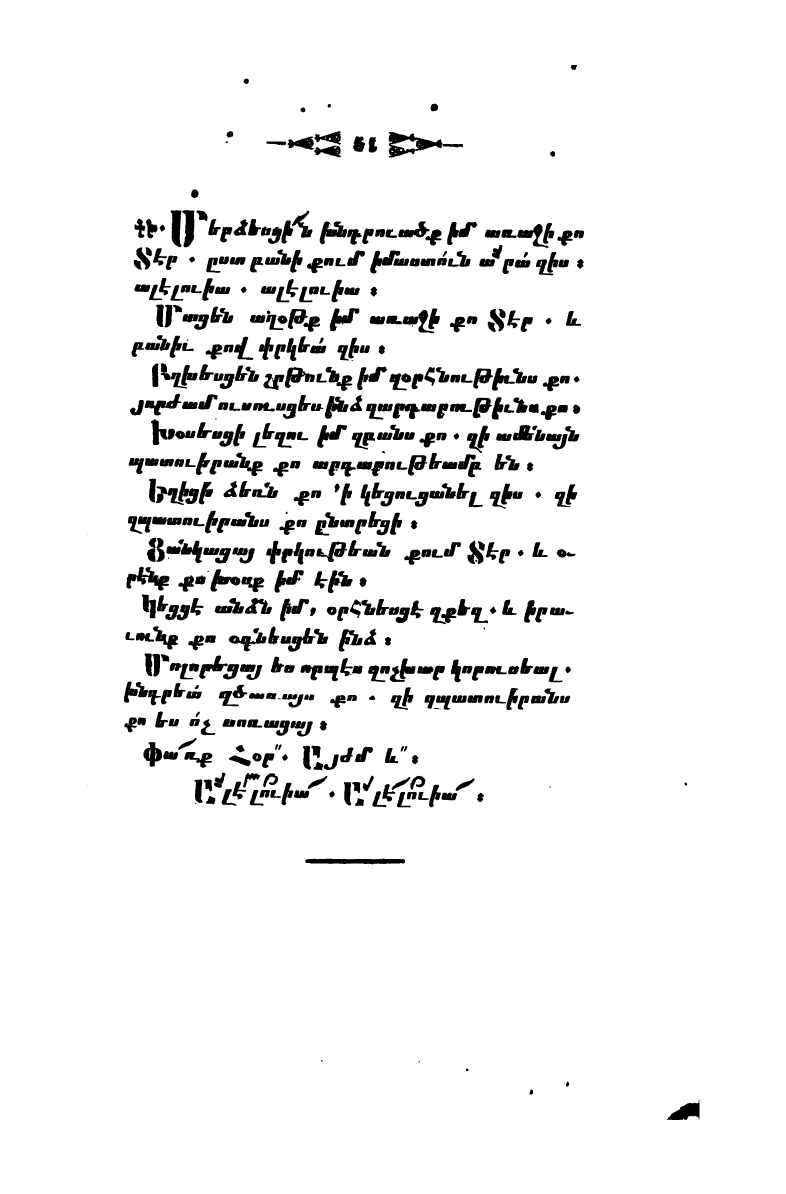 51
դի. Մերձեսցի՛ն խնդրուածք իմ առաջի քո
Տէր . ըստ բանի քում իմաստո՛ւն ա՛րա՛ զիս ։
ալէլուիա . ալէլուիա ։
Մտցեն աղօթք իմ առաջի քո Տէր . և
բանիւ քով փրկեա՛ զիս ։
Բղխեսցեն շրթունք իմ զօրհնութիւնս քո.
յորժամ ուսուսցես ինձ զարդարութիւնս քո ։
Խօսեսցի լեզու իմ զբանս քո . զի ամենայն
պատուիրանք քո արդարութեամբ են ։
Եղիցի ձեռն քո ՚ի կեցուցանել զիս . զի
զպատուիրանս քո ընտրեցի ։
Ցանկացայ փրկութեան քում Տէր . և օ-
րէնք քո խօսք իմ էին ։
Կեցցէ անձն իմ, օրհնեսցէ զքեզ . և իրա-
ւունք քո օգնեսցեն ինձ ։
Մոլորեցայ ես որպէս զոչխար կորուսեալ .
խնդրեա՛ զծառայս քո . զի զպատուիրանս
քո ես ո՛չ մոռացայ ։
Փա՛ռք Հօր՟. Այժմ և՟ ։
Ալէլուիա . Ալէլուիա ։